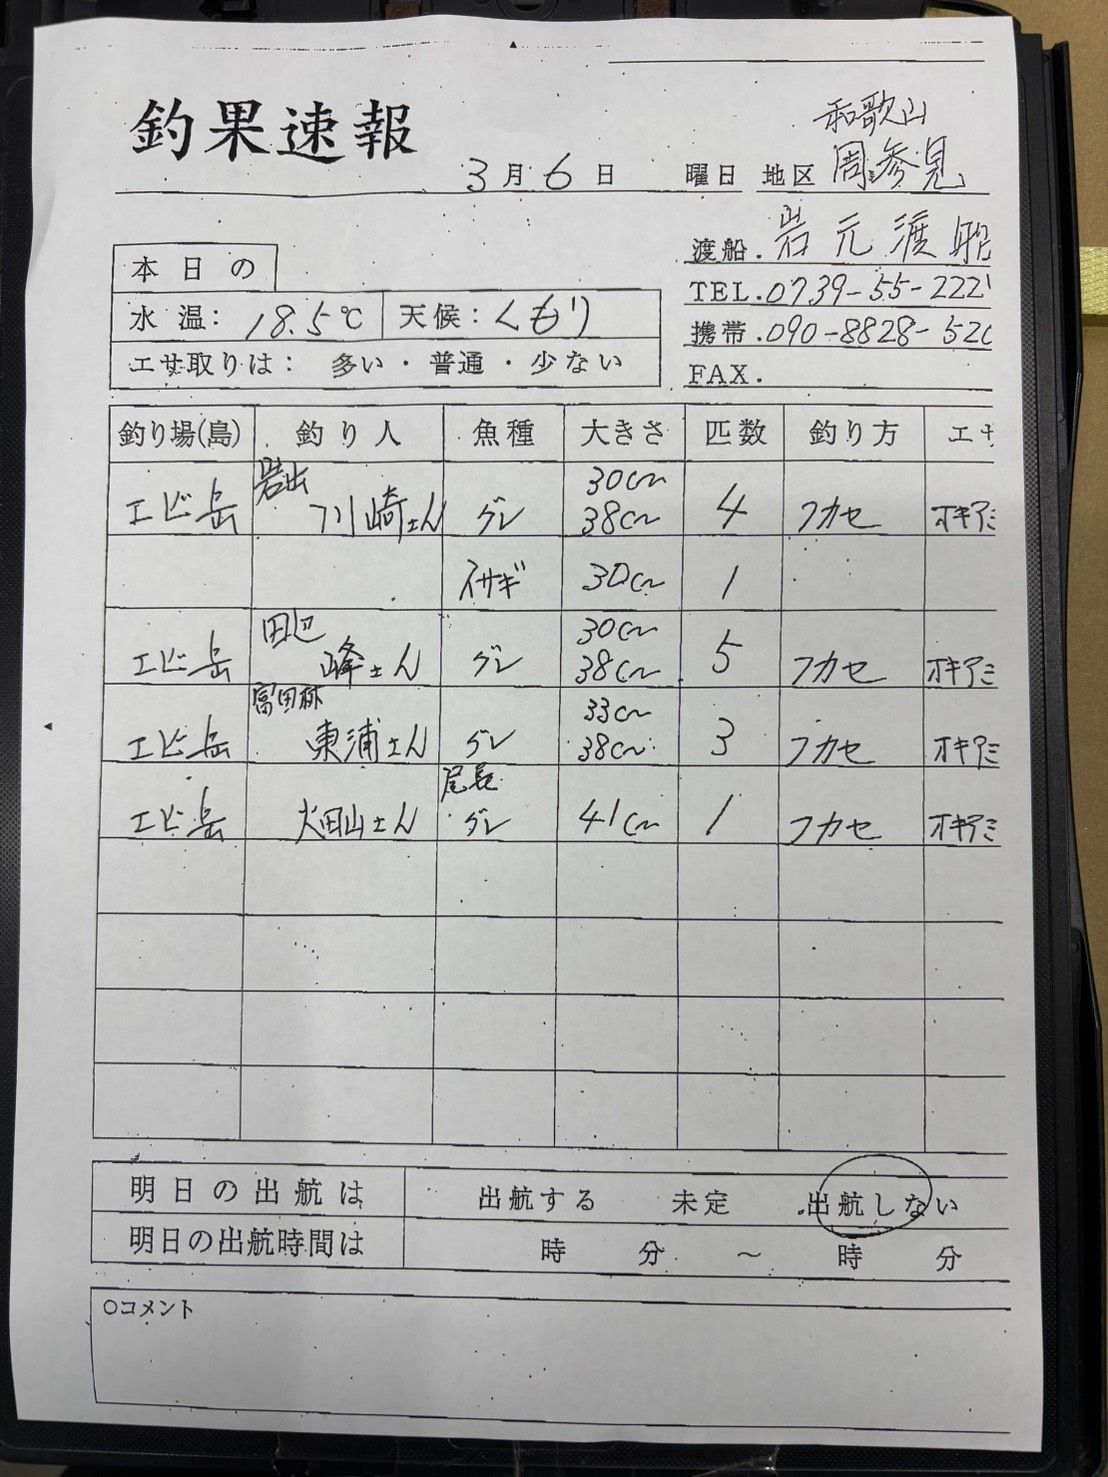 釣果速報
3月6日 曜日 地区 和歌山 周参見
渡船. 岩元渡船
TEL. 0739-55-222
携帯. 090-8828-52
FAX.
本日の
水温: 18.5℃ 天候: くもり
エサ取りは: 多い・普通・少ない
釣り場(島) 釣り人 魚種 大きさ 匹数 釣り方 エサ
エビ岳 岩出 川崎さん グレ 30cm 38cm 4 フカセ オキアミ
イサギ 30cm 1
エビ岳 田辺 峰さん グレ 30cm 38cm 5 フカセ オキアミ
エビ岳 富田林 東浦さん グレ 33cm 38cm 3 フカセ オキアミ
エビ岳 さん 尾長グレ 41cm 1 フカセ オキアミ
明日の出航は 出航する 未定 出航しない
明日の出航時間は 時 分 〜 時 分
○コメント